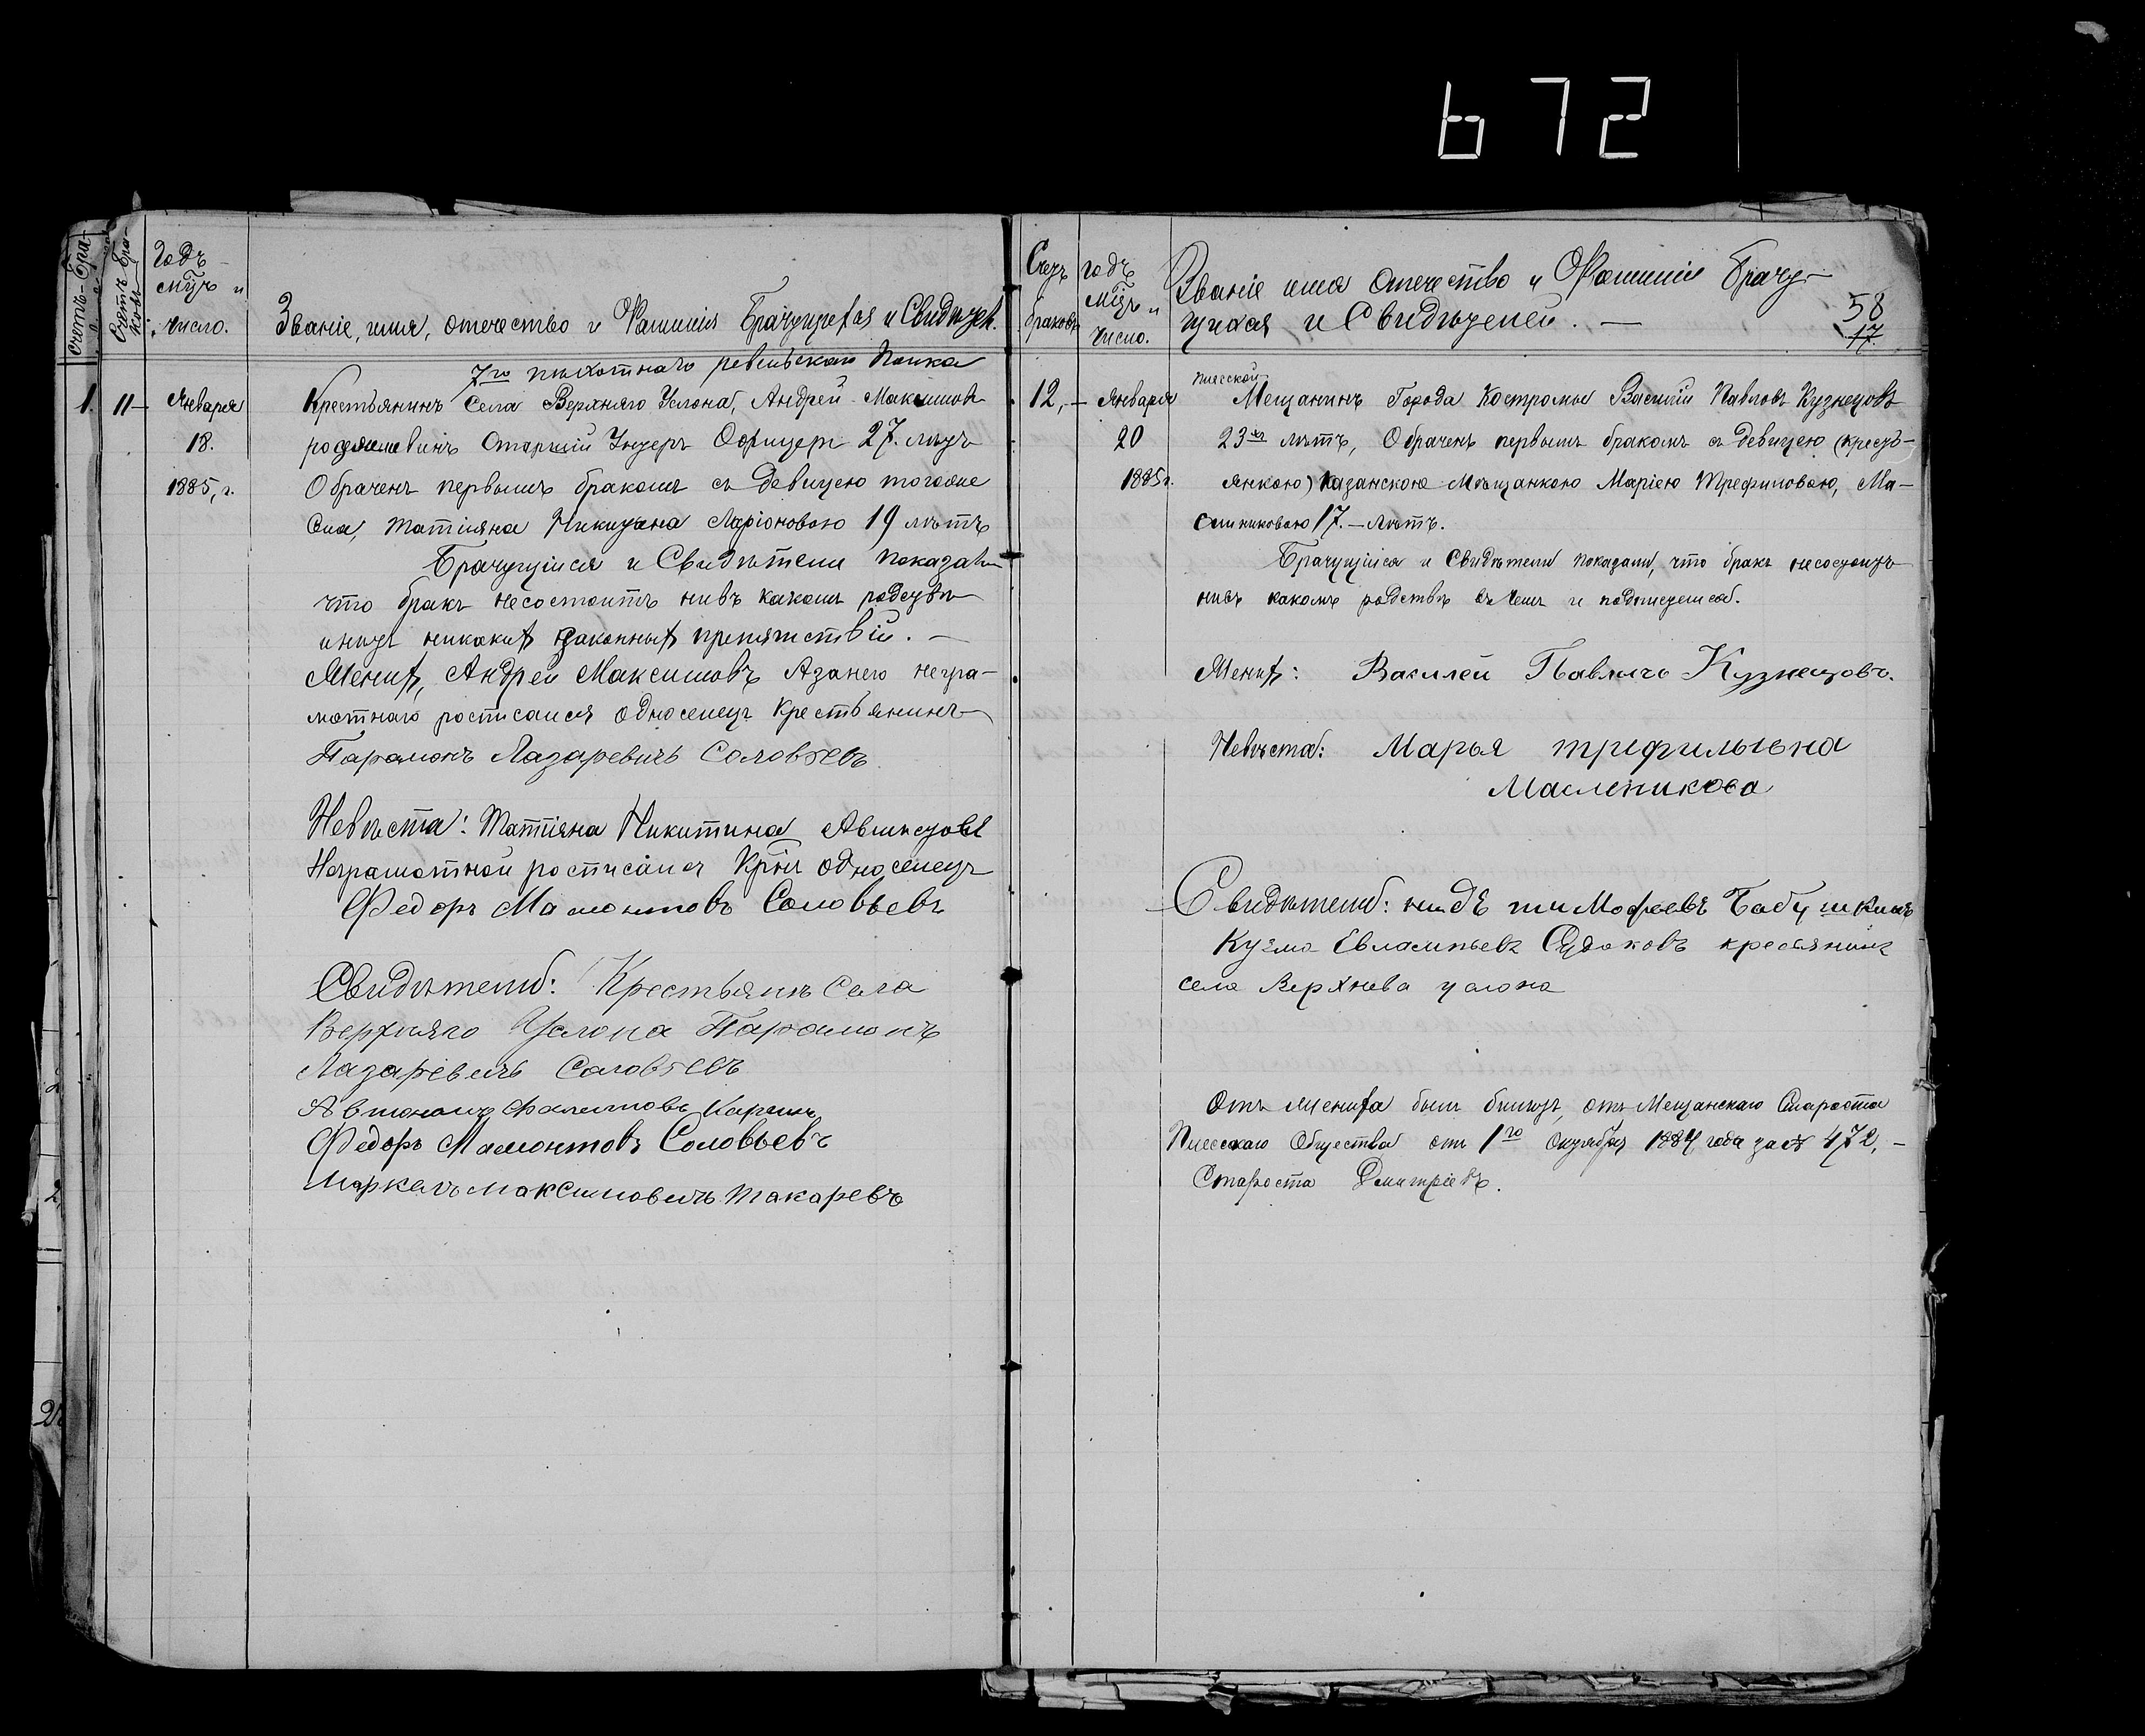 672
Счетъ бра-
Счетъ бра-
ковъ
Годъ
мцъ и
число.
Званіе, имя, отечество и Фамилія Брачущихся и Свидѣтел.
7го пѣхотнаго ревельскаго Полка
1. 11 Января
18.
1885, г.
Крестьянинъ Села Верхняго Услона, Андрей Максимов
Старшій Унтеръ Офицеръ 27. лѣтъ
Обраченъ первымъ бракомъ съ Девицею тогоже
Села, Татіяна Никитина Ларіоновою 19 лѣтъ
Брачущіися и Свидѣтели показали
что бракъ несостоитъ нивъ какомъ родстве
инетъ никакихъ законныхъ препятствій. —
Женихъ, Андрей Максимовъ Азанего негра-
мотнаго росписался односелецъ Крестьянинъ
Парамонъ Лазаревичъ Соловьевъ
Невѣста: Татіяна Никитина
Неграмотной росписался Крнъ односелецъ
Федоръ Мамонтовъ Соловьевъ
Свидѣтели: Крестьянъ Села
Верхняго Услона Парамонъ
Лазаревичъ Соловьевъ
Автономъ
Федоръ Мамонтовъ Соловьевъ
Маркелъ Максимовичъ Токаревъ
Счетъ
браковъ
годъ
Мцъ и
Число.
Званіе имя Отечество и Фамиліи Брачу-
щихся и Свидѣтелей. —
58
17.
12, — Января
20
1885г.
Плесской
Мещанинъ Города Костромы Василій Павловъ Кузнецовъ
23хъ лѣтъ, Обраченъ первымъ бракомъ съ девицею (кресть-
янкою) Казанскою Мѣщанкою Маріею Трефиловою, Ма-
сленниковою 17. — Лѣтъ.
Брачущійся и Свидѣтели показали, что бракъ несостоитъ
нивъ какомъ родствѣ въ чемъ и подписуемся.
Женихъ: Василей Павлычъ Кузнецовъ.
Невѣста: Марья трефильевна
Масленикова
Свидѣтели: тимофеевъ Бабушкинъ
Кузма Евлампьевъ Судаковъ крестянинъ
села Верхнева услона
Отъ жениха былъ билетъ, отъ Мещанскаго Старосты
Плесскаго Общества отъ 1го Октября 1884 года за № 472, —
Староста Дмитріевъ.